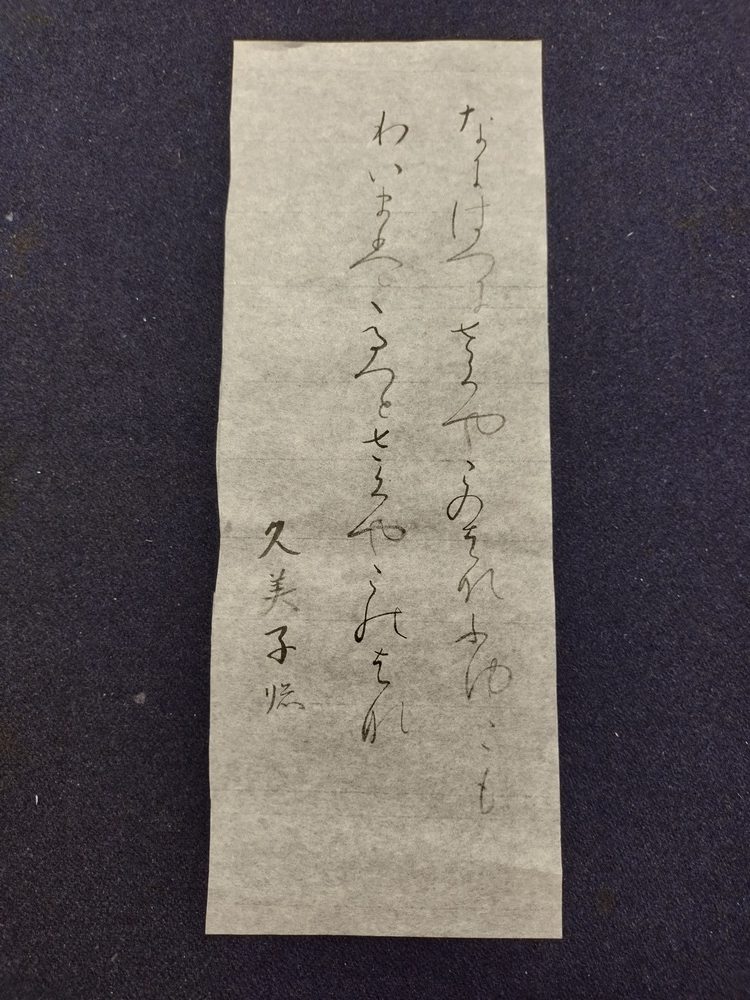 なにはつにさくやこのはなふゆこも
りいまははるへとさくやこのはな
久美子臨